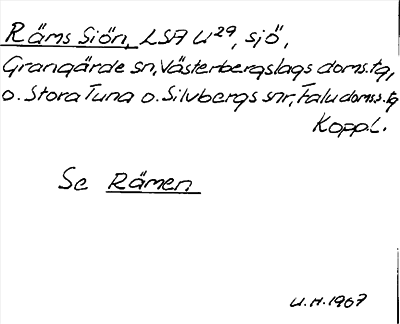 Räms Siön, LSA U29, sjö,
Grangärde sn, Västerbergslags doms.tg,
o. Stora Tuna o. Silvbergs snr, Falu doms.tg
Kopp.L.
Se Rämen
U.H. 1967